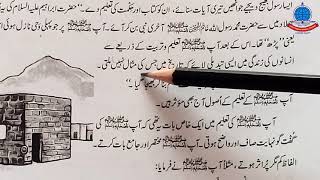 ایسا رسول بھیج دیجیے جو انھیں تیری آیات سنائے، ان کو کتاب اور حکمت کی تعلیم دے۔" حضرت ابراہیم علیہ السلام کی
اولاد میں سے حضرت محمد رسول اللہ ﷺ آخری نبی بن کر آئے۔ آپ ﷺ پر جو پہلی وحی نازل ہوئی
یعنی "پڑھ" تھا۔ اس کے بعد آپ ﷺ نے تعلیم و تربیت کے ذریعے سے
انسانوں کی زندگی میں ایسی تبدیلی تاریخ میں جس کی مثال نہیں ملتی۔
بنا کر بھیجا گیا۔"
آپ ﷺ کے تعلیم کے اصول آج بھی مؤثر ہیں۔
آپ ﷺ کی تعلیم میں ایک خاص بات یہ تھی کہ آپ ﷺ کی
گفت گو نہایت صاف اور واضح ہوتی۔ آپ ﷺ مختصر اور جامع بات کرتے۔
الفاظ کم مگر پُر اثر ہوتے، مثلاً آپ ﷺ نے فرمایا: